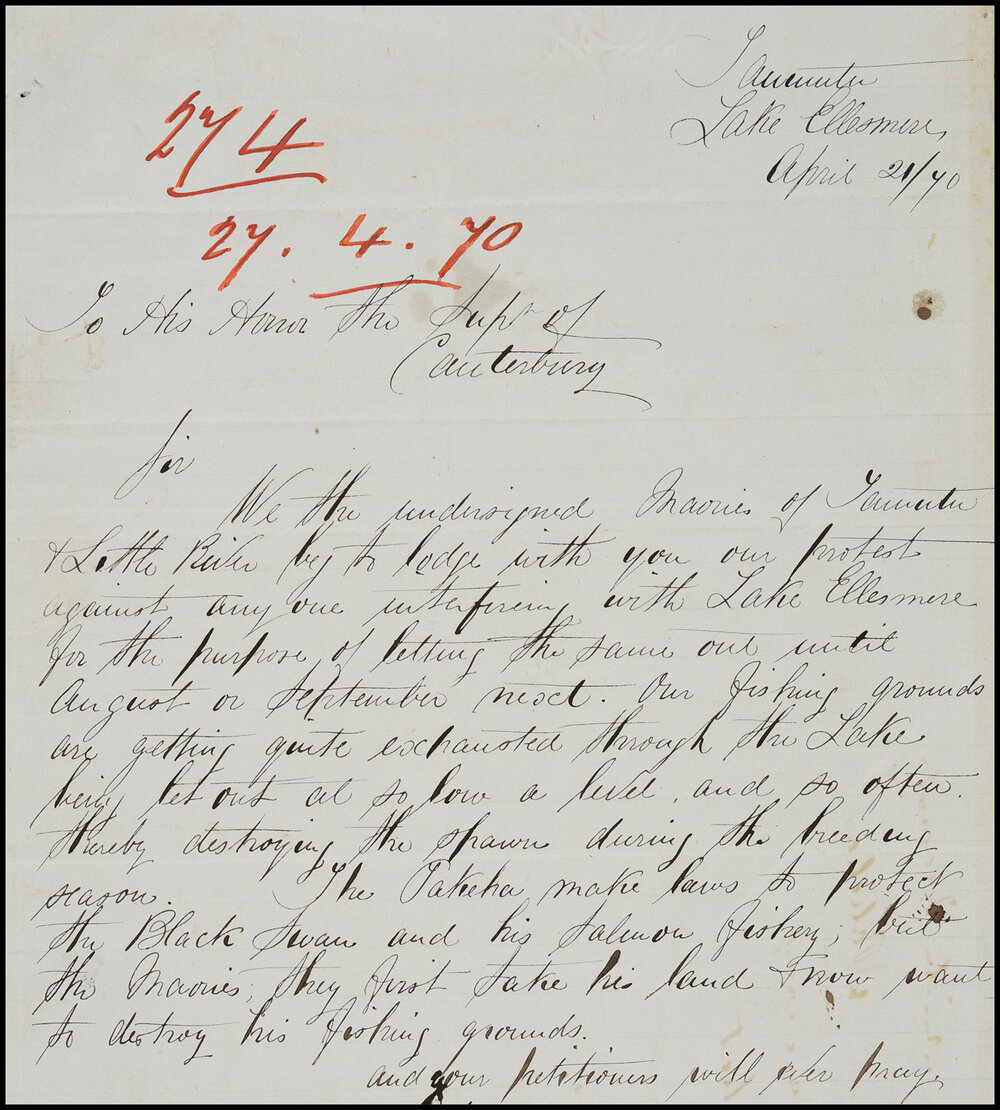 Taumutu
Lake Ellesmere
April 21/70
274
27. 4. 70
To His Honor the Supt of
Canterbury
Sir
We the undersigned Maories of Taumutu
& Little River beg to lodge with you our protest
against any one interfering with Lake Ellesmere
for the purpose of letting the same out until
August or September next. Our fishing grounds
are getting quite exhausted through the Lake
being let out at so low a level, and so often.
thereby destroying the spawn during the breeding
season. The Pakeha make laws to protect
the Black Swan and his Salmon fishery; but
the Maories, they first take his land & now want
to destroy his fishing grounds.
and your petitioners will ever pray.